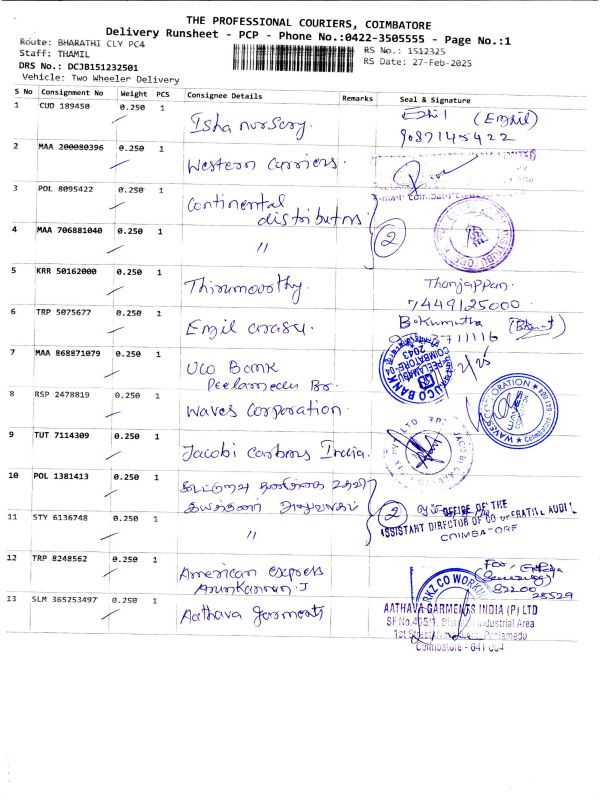 THE PROFESSIONAL COURIERS, COIMBATORE
Delivery Runsheet - PCP - Phone No.:0422-3505555 - Page No.:1
Route: BHARATHI CLY PC4
RS No.: 151232S
Staff: THAMIL
RS Date: 27-Feb-2025
DRS No.: DCJB151232501
Vehicle: Two Wheeler Delivery
S No Consignment No Weight PCS Consignee Details Remarks Seal & Signature
1 CUD 189450 0.250 1 Isha nursery. Ezhil (Emxil)
9087145422
2 MAA 200080396 0.250 1 Western carriers.
3 POL 8095422 0.250 1 Continental
distributors
4 MAA 706881040 0.250 1 〃 2
5 KRR 50162000 0.250 1 Thirumoorthy. Thanjappan.
7449125000
6 TRP 5075677 0.250 1 Emil arasu.
7 MAA 868871079 0.250 1 UCO Bank
Peelamedu Br.
UCO BANK
PEELAMEDU
COIMBATORE-04
2043
8 RSP 2478819 0.250 1 Waves Corporation.
WAVES CORPORATION
Coimbatore 641 004
9 TUT 7114309 0.250 1 Jacobi Carbons India.
10 POL 1381413 0.250 1 கூட்டுறவு தணிக்கை உதவி
இயக்குனர் அலுவலகம்
2
OFFICE OF THE
ASSISTANT DIRECTOR OF CO OPERATIVE AUDIT
COIMBATORE
11 STY 6136748 0.250 1 〃
12 TRP 8248562 0.250 1 American express
Arunkannan.J
For,
87200
25529
13 SLM 365253497 0.250 1 Aathava garments
AATHAVA GARMENTS INDIA (P) LTD
SF No.455/1, Industrial Area
1st Street Peelamedu
Coimbatore - 641 004